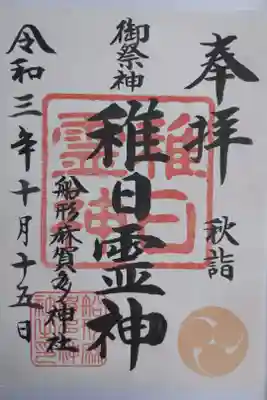 奉拝
秋詣
御祭神
稚日霊神
船形麻賀多神社
令和三年十月十五日
稚日
霊神